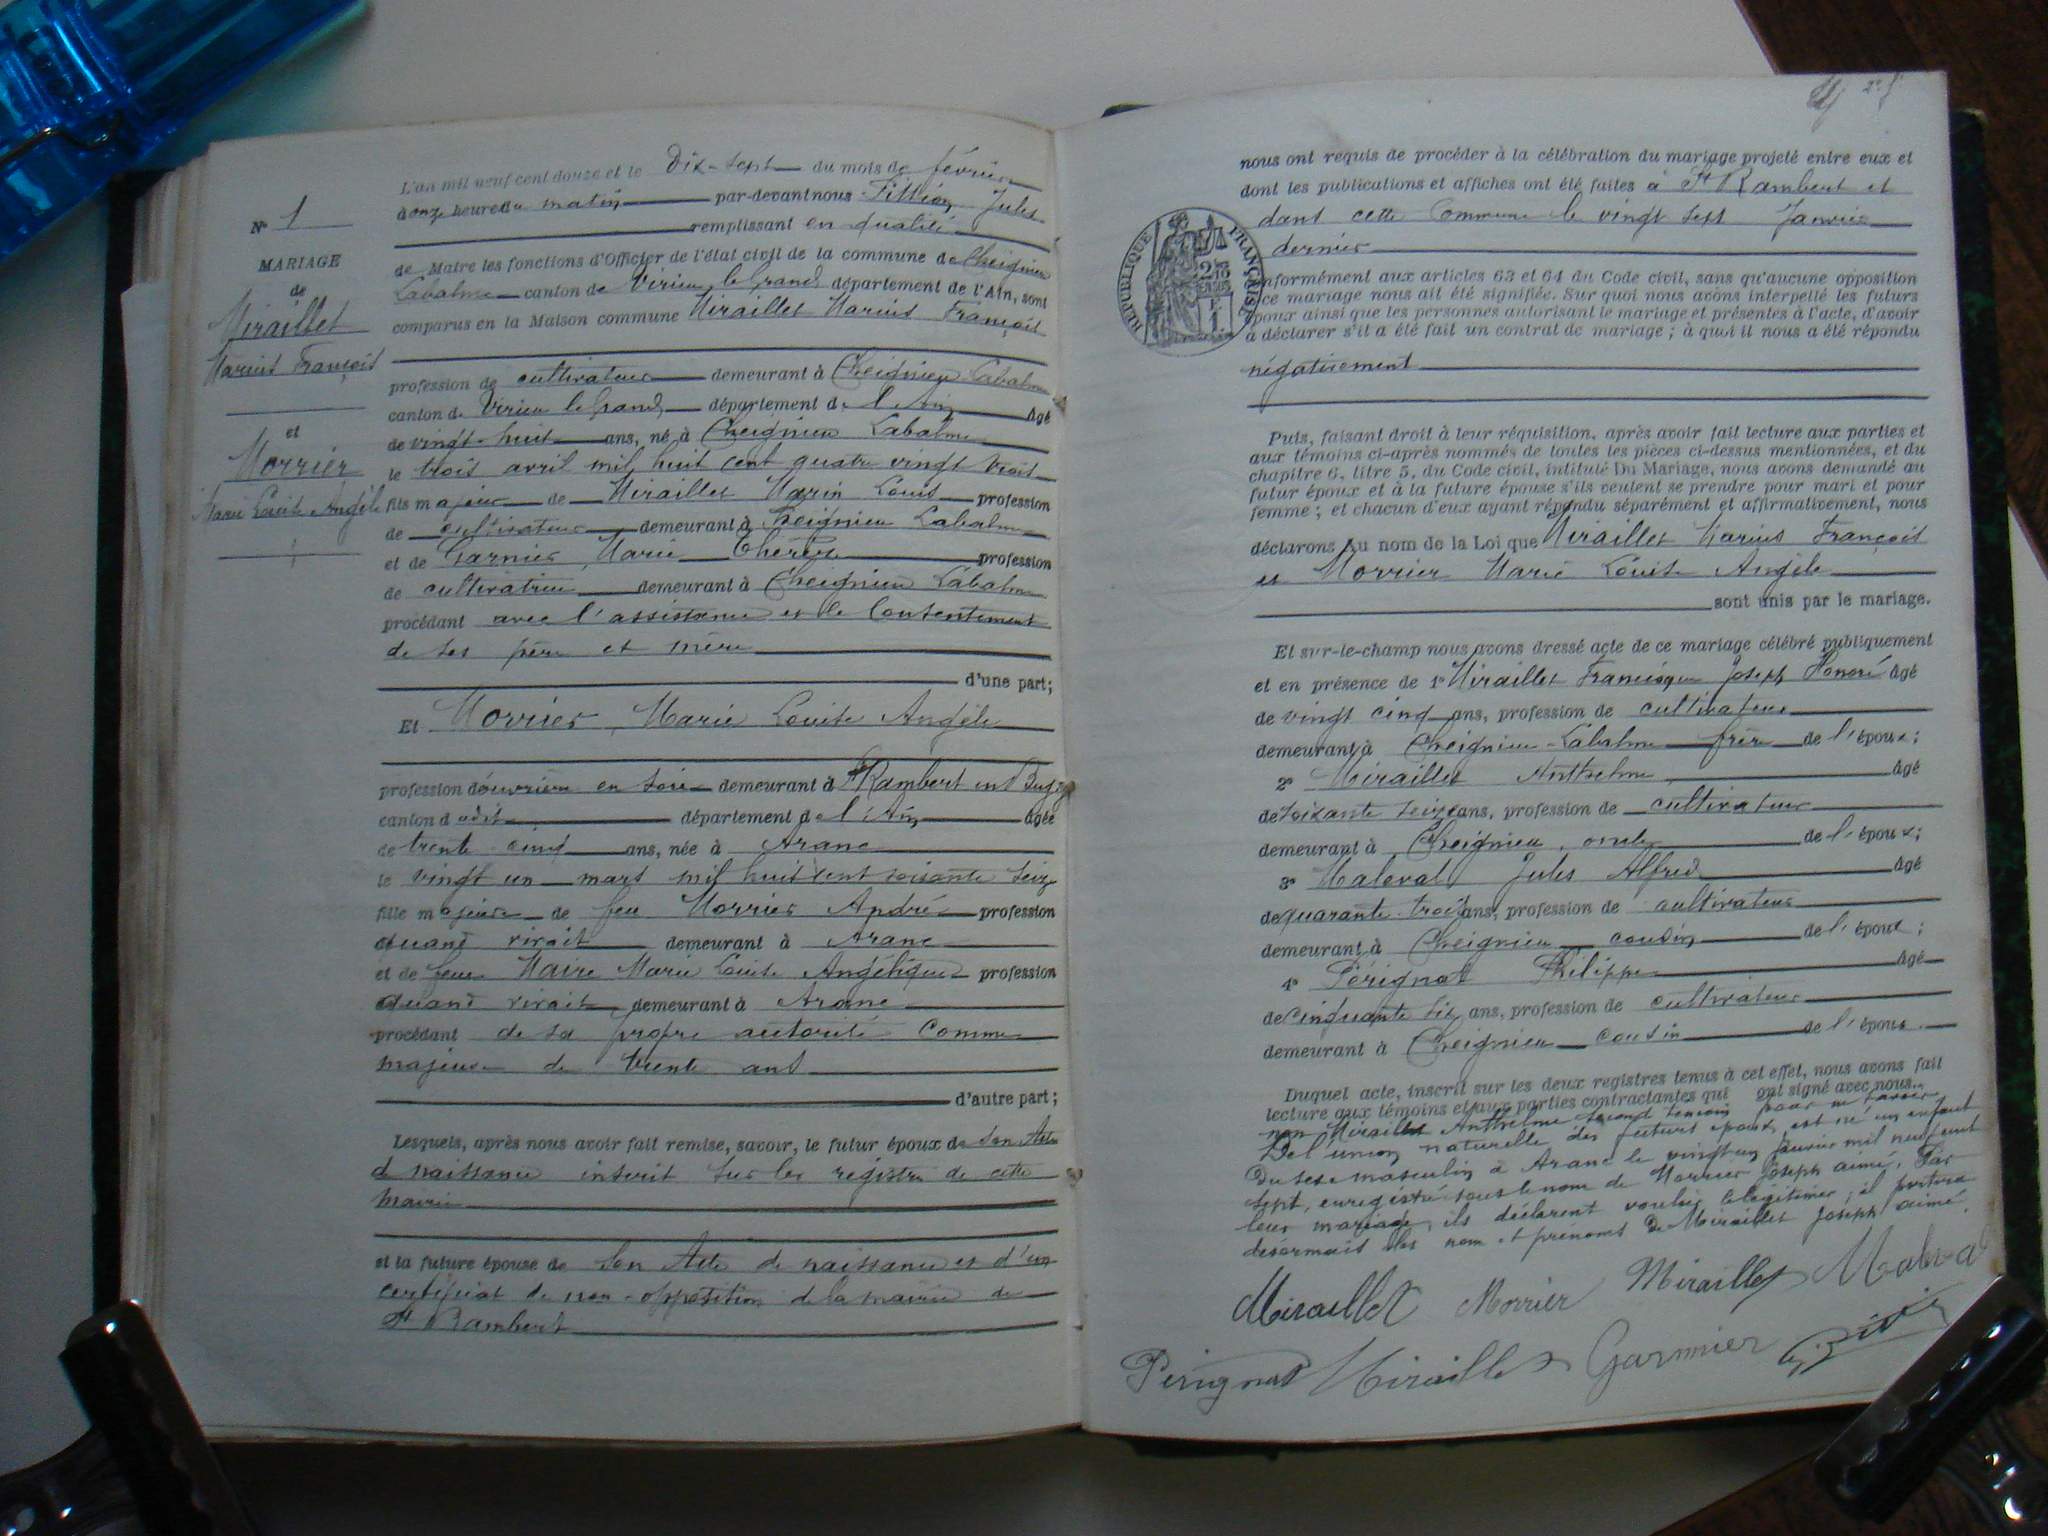 L'an mil neuf cent douze et le Dix-sept du mois de février
à onze heures du matin par-devant nous Jules
remplissant en qualité
de Maire les fonctions d'Officier de l'état civil de la commune de Cheignieu
Labalme canton de Virieu le Grand département de l'Ain, sont
comparus en la Maison commune Miraillet Marius François
N° 1
MARIAGE
de
Miraillet
Marius François
et
Morrier
Marie Louise Angèle
profession de cultivateur demeurant à Cheignieu-Labalme
canton de Virieu le Grand département de l'Ain âgé
de vingt-huit ans, né à Cheignieu Labalme
le trois avril mil huit cent quatre vingt trois
fils majeur de Miraillet Marin Louis profession
de cultivateur demeurant à Cheignieu Labalme
et de Garnier Marie Thérèse profession
de cultivatrice demeurant à Cheignieu Labalme
procédant avec l'assistance et le consentement
de ses père et mère
d'une part;
Et Morrier Marie Louise Angèle
profession d'ouvrière en soie demeurant à St Rambert en Bugey
canton dudit département de l'Ain âgée
de trente cinq ans, née à Aranc
le vingt un mars mil huit cent soixante seize
fille majeure de feu Morrier André profession
quand vivait demeurant à Aranc
et de feue Maire Marie Louise Angélique profession
quand vivait demeurant à Aranc
procédant de sa propre autorité comme
majeure de trente ans
d'autre part;
Lesquels, après nous avoir fait remise, savoir, le futur époux de son Acte
de naissance inscrit sur les registres de cette
mairie
et la future épouse de son Acte de naissance et d'un
certificat de non-opposition de la mairie de
St Rambert
nous ont requis de procéder à la célébration du mariage projeté entre eux et
dont les publications et affiches ont été faites à St Rambert et
dans cette Commune le vingt sept Janvier
dernier
RÉPUBLIQUE FRANÇAISE
onformément aux articles 63 et 64 du Code civil, sans qu'aucune opposition
ce mariage nous ait été signifiée. Sur quoi nous avons interpellé les futurs
poux ainsi que les personnes autorisant le mariage et présentes à l'acte, d'avoir
à déclarer s'il a été fait un contrat de mariage; à quoi il nous a été répondu
négativement
Puis, faisant droit à leur réquisition, après avoir fait lecture aux parties et
aux témoins ci-après nommés de toutes les pièces ci-dessus mentionnées, et du
chapitre 6, titre 5, du Code civil, intitulé Du Mariage, nous avons demandé au
futur époux et à la future épouse s'ils veulent se prendre pour mari et pour
femme; et chacun d'eux ayant répondu séparément et affirmativement, nous
déclarons Au nom de la Loi que Miraillet Marius François
et Morrier Marie Louise Angèle
sont unis par le mariage.
Et sur-le-champ nous avons dressé acte de ce mariage célébré publiquement
et en présence de 1° Miraillet Francisque Joseph Honoré âgé
de vingt cinq ans, profession de cultivateur
demeurant à Cheignieu-Labalme frère de l'époux;
2° Miraillet Anthelme âgé
de soixante seize ans, profession de cultivateur
demeurant à Cheignieu, oncle de l'époux;
3° Maleval Jules Alfred âgé
de quarante-trois ans, profession de cultivateur
demeurant à Cheignieu cousin de l'époux;
4° Pérignat Philippe âgé
de cinquante six ans, profession de cultivateur
demeurant à Cheignieu cousin de l'époux.
Duquel acte, inscrit sur les deux registres tenus à cet effet, nous avons fait
lecture aux témoins et aux parties contractantes qui ont signé avec nous.
non Miraillet Anthelme second témoin pour ne savoir
De l'union naturelle des futurs époux est né un enfant
du sexe masculin à Aranc le vingt un janvier mil neuf cent
sept, enregistré sous le nom de Morrier Joseph aimé. Par
leur mariage, ils déclarent vouloir le légitimer; il portera
désormais les nom et prénoms de Miraillet Joseph aimé.
Miraillet Morrier Miraillet Maleval
Pérignat Miraillet Garnier